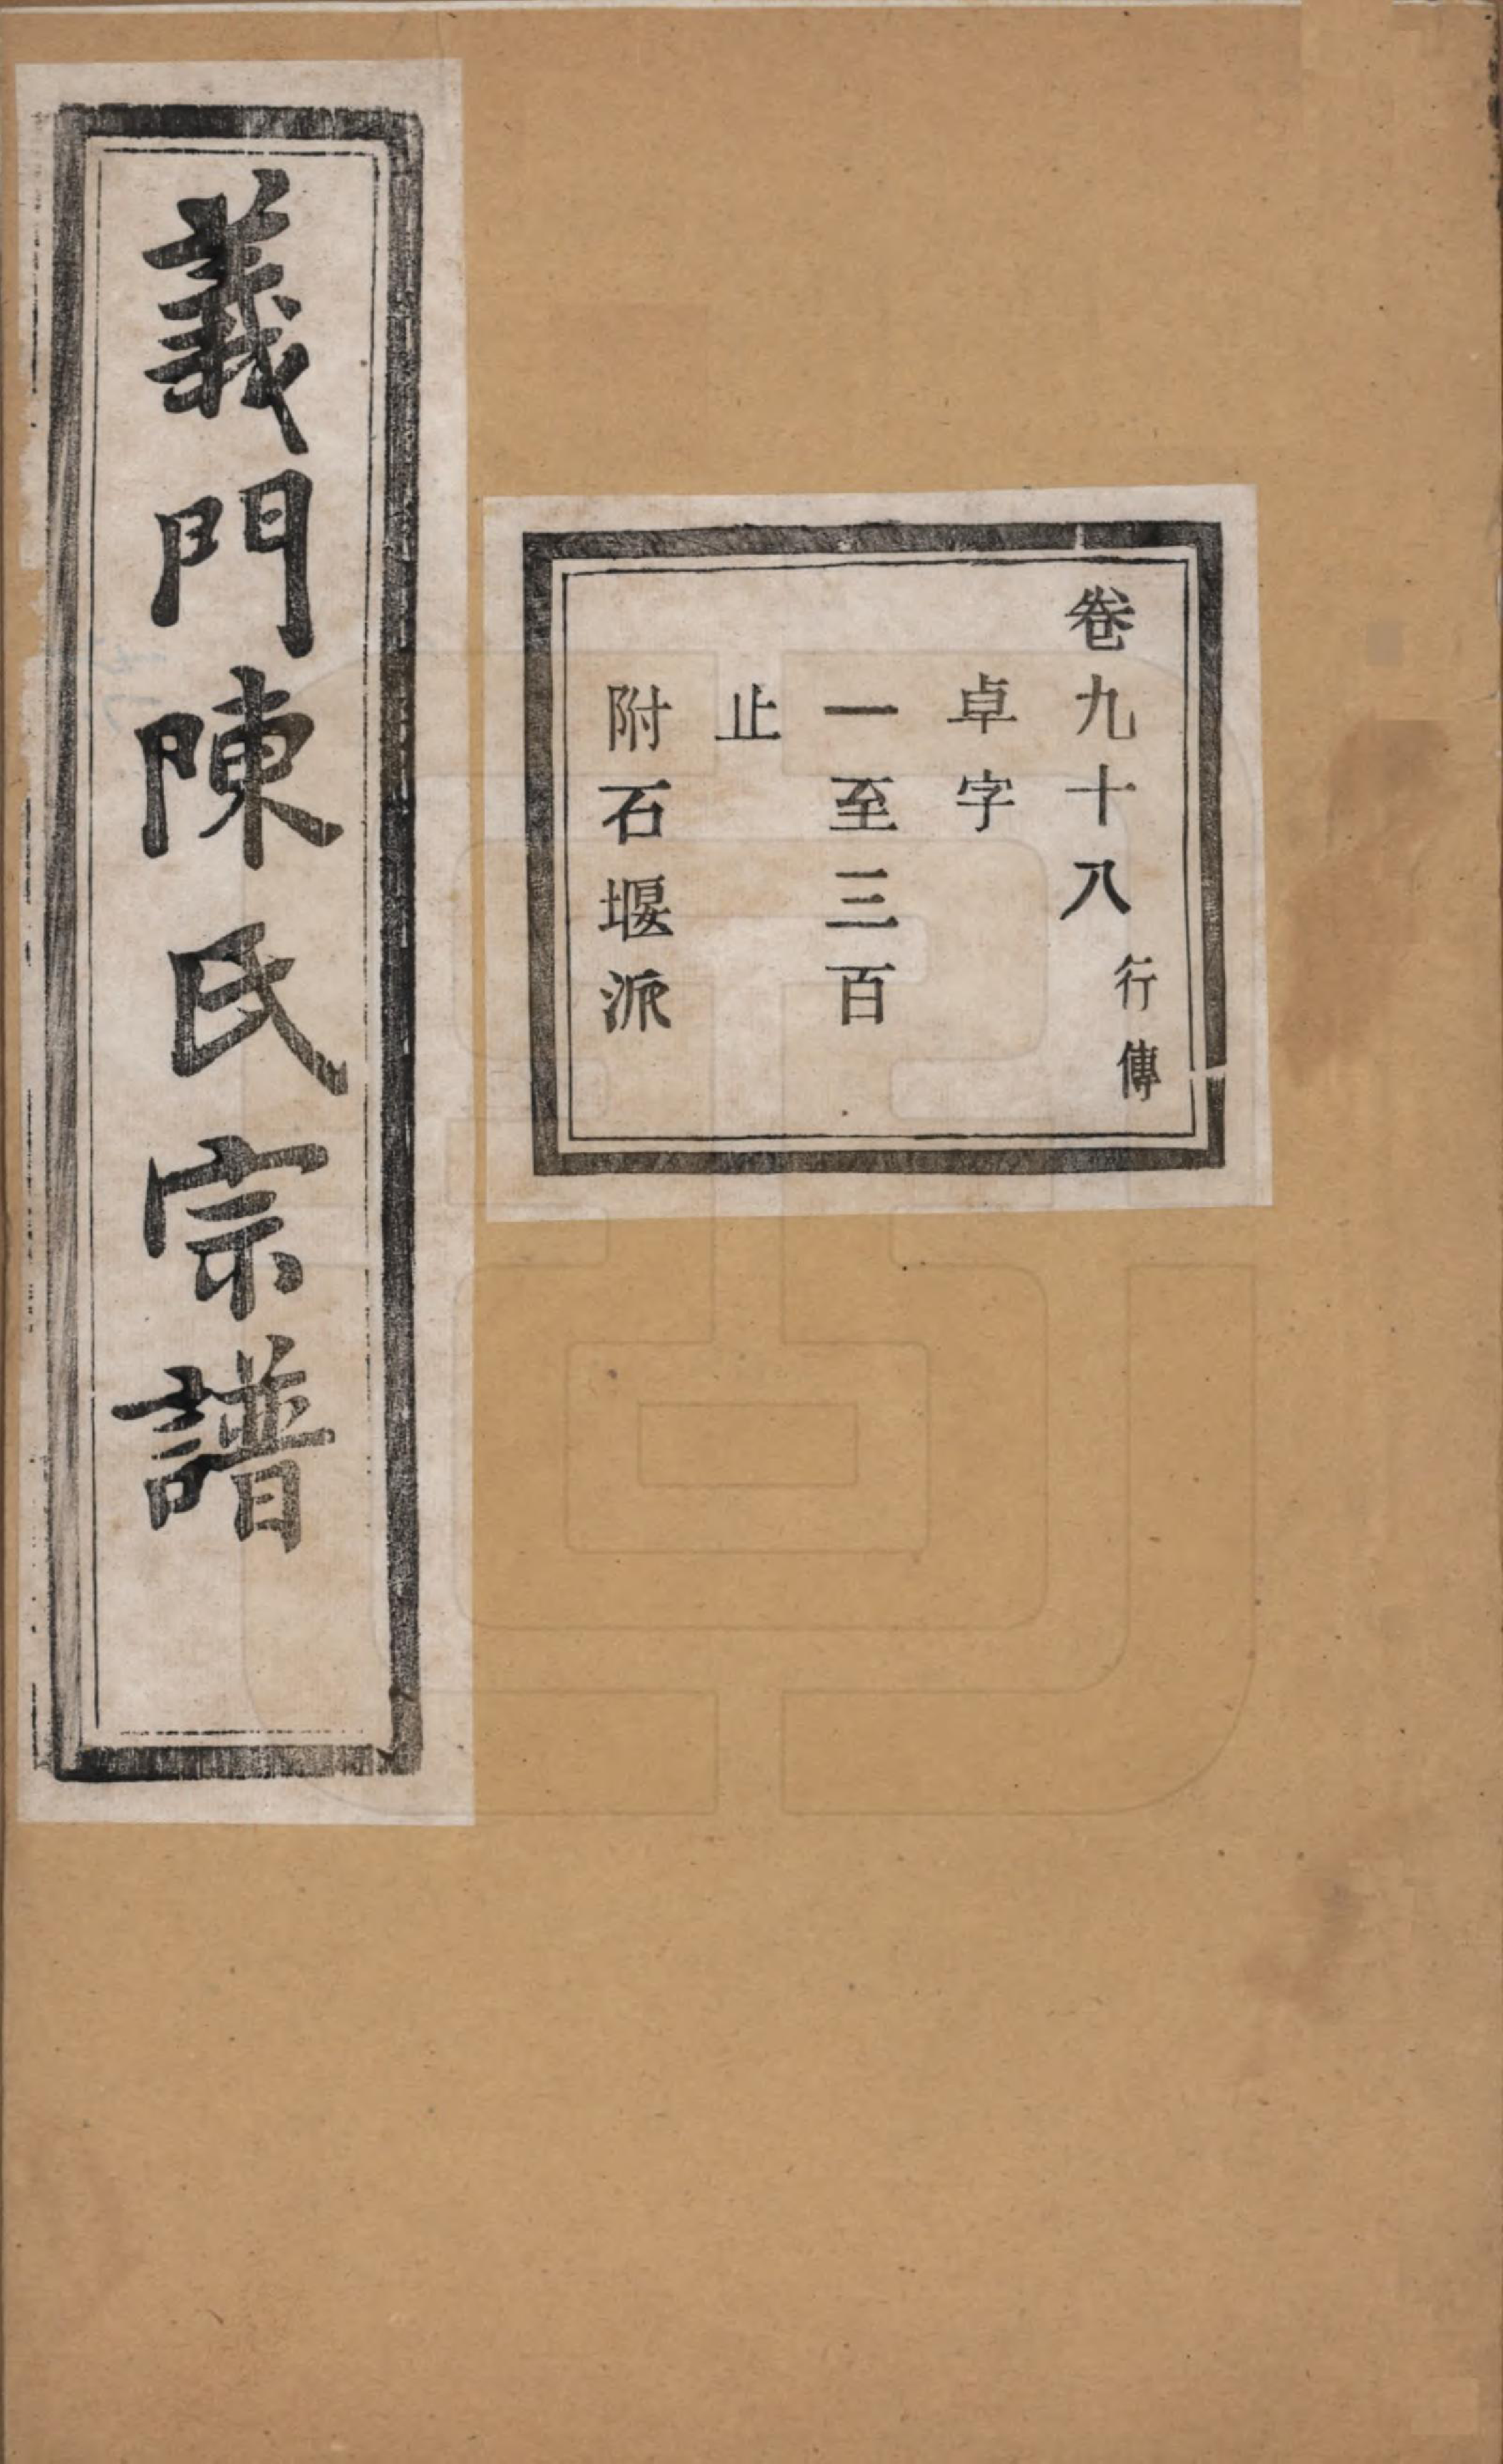 卷九十八行傳
卓字
一至三百
止
附石堰派
義門陳氏宗譜